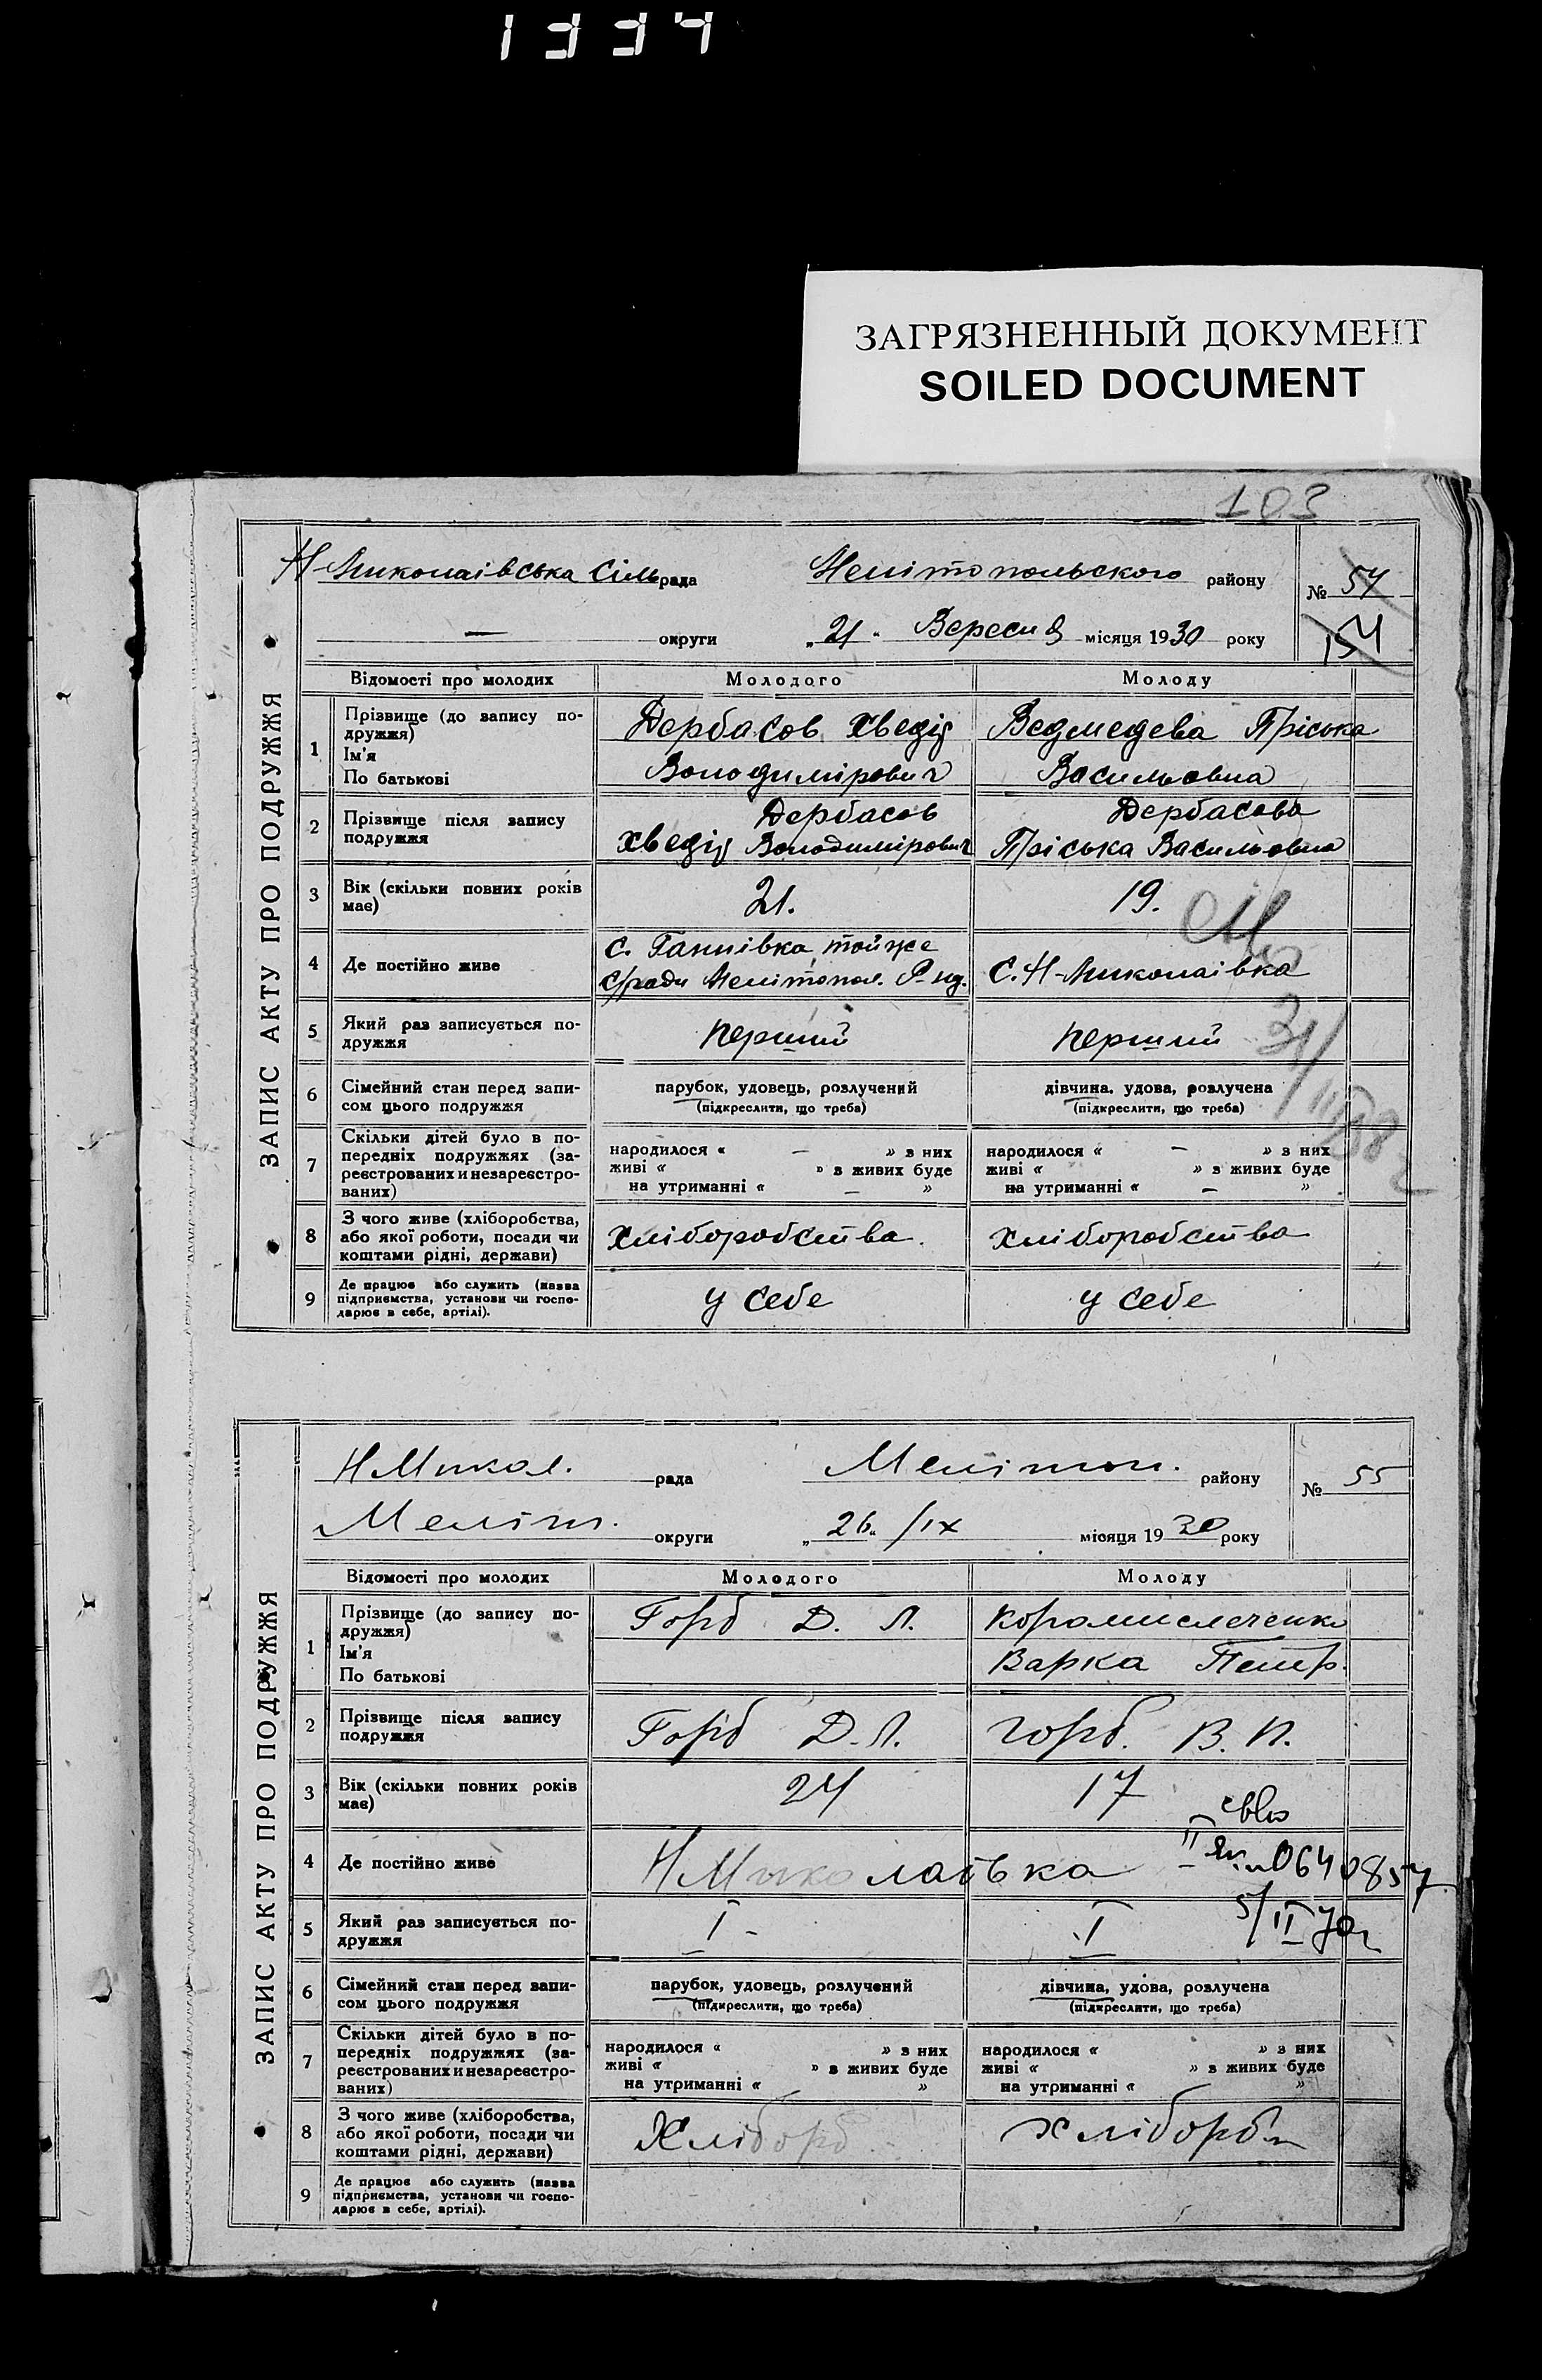 1334
ЗАГРЯЗНЕННЫЙ ДОКУМЕНТ
SOILED DOCUMENT
103
ЗАПИС АКТУ ПРО ПОДРУЖЖЯ
Н-Миколаівська Сільрада Мелітопольского району № 54
— округи „21“ Вересня місяця 1930 року 154
Відомості про молодих Молодого Молоду
1 Прізвище (до запису по-
дружжя)
Ім'я
По батькові
Дербасов Хведір
Володимірович
Ведмедева Пріська
Васильовна
2 Прізвище після запису
подружжя
Дербасов
Хведір Володимірович
Дербасова
Пріська Васильовна
3 Вік (скільки повних років
має)
21.
19.
4 Де постійно живе
с. Ганнівка тойже
с/ради Мелітопол. Р-ну.
С. Н-Миколаівка
5 Який раз записується по-
дружжя
перший
перший
31/III 58 г
6 Сімейний стан перед запи-
сом цього подружжя
парубок, удовець, розлучений
(підкреслити, що треба)
дівчина, удова, розлучена
(підкреслити, що треба)
7 Скільки дітей було в по-
передніх подружжях (за-
реєстрованих и незареєстро-
ваних)
народилося « — » з них
живі « » з живих буде
на утриманні « — »
народилося « — » з них
живі « » з живих буде
на утриманні « — »
8 З чого живе (хліборобства,
або якої роботи, посади чи
коштами рідні, держави)
хліборобства.
хліборобства
9 Де працює або служить (назва
підприємства, установи чи госпо-
дарює в себе, артілі).
у себе
у себе
ЗАПИС АКТУ ПРО ПОДРУЖЖЯ
Н Микол. рада Мелітоп. району № 55
Меліт. округи „26“ /IX місяця 1930 року
Відомості про молодих Молодого Молоду
1 Прізвище (до запису по-
дружжя)
Ім'я
По батькові
Горб Д. Л.
Коромислеченко
Варка Петр.
2 Прізвище після запису
подружжя
Горб Д. Л.
Горб. В. П.
3 Вік (скільки повних років
має)
24
17
4 Де постійно живе
Н Миколаівка
0640857
5/II 70г
5 Який раз записується по-
дружжя
I -
I
6 Сімейний стан перед запи-
сом цього подружжя
парубок, удовець, розлучений
(підкреслити, що треба)
дівчина, удова, розлучена
(підкреслити, що треба)
7 Скільки дітей було в по-
передніх подружжях (за-
реєстрованих и незареєстро-
ваних)
народилося « » з них
живі « » з живих буде
на утриманні « »
народилося « » з них
живі « » з живих буде
на утриманні « »
8 З чого живе (хліборобства,
або якої роботи, посади чи
коштами рідні, держави)
Хліборб
хліборб
9 Де працює або служить (назва
підприємства, установи чи госпо-
дарює в себе, артілі).